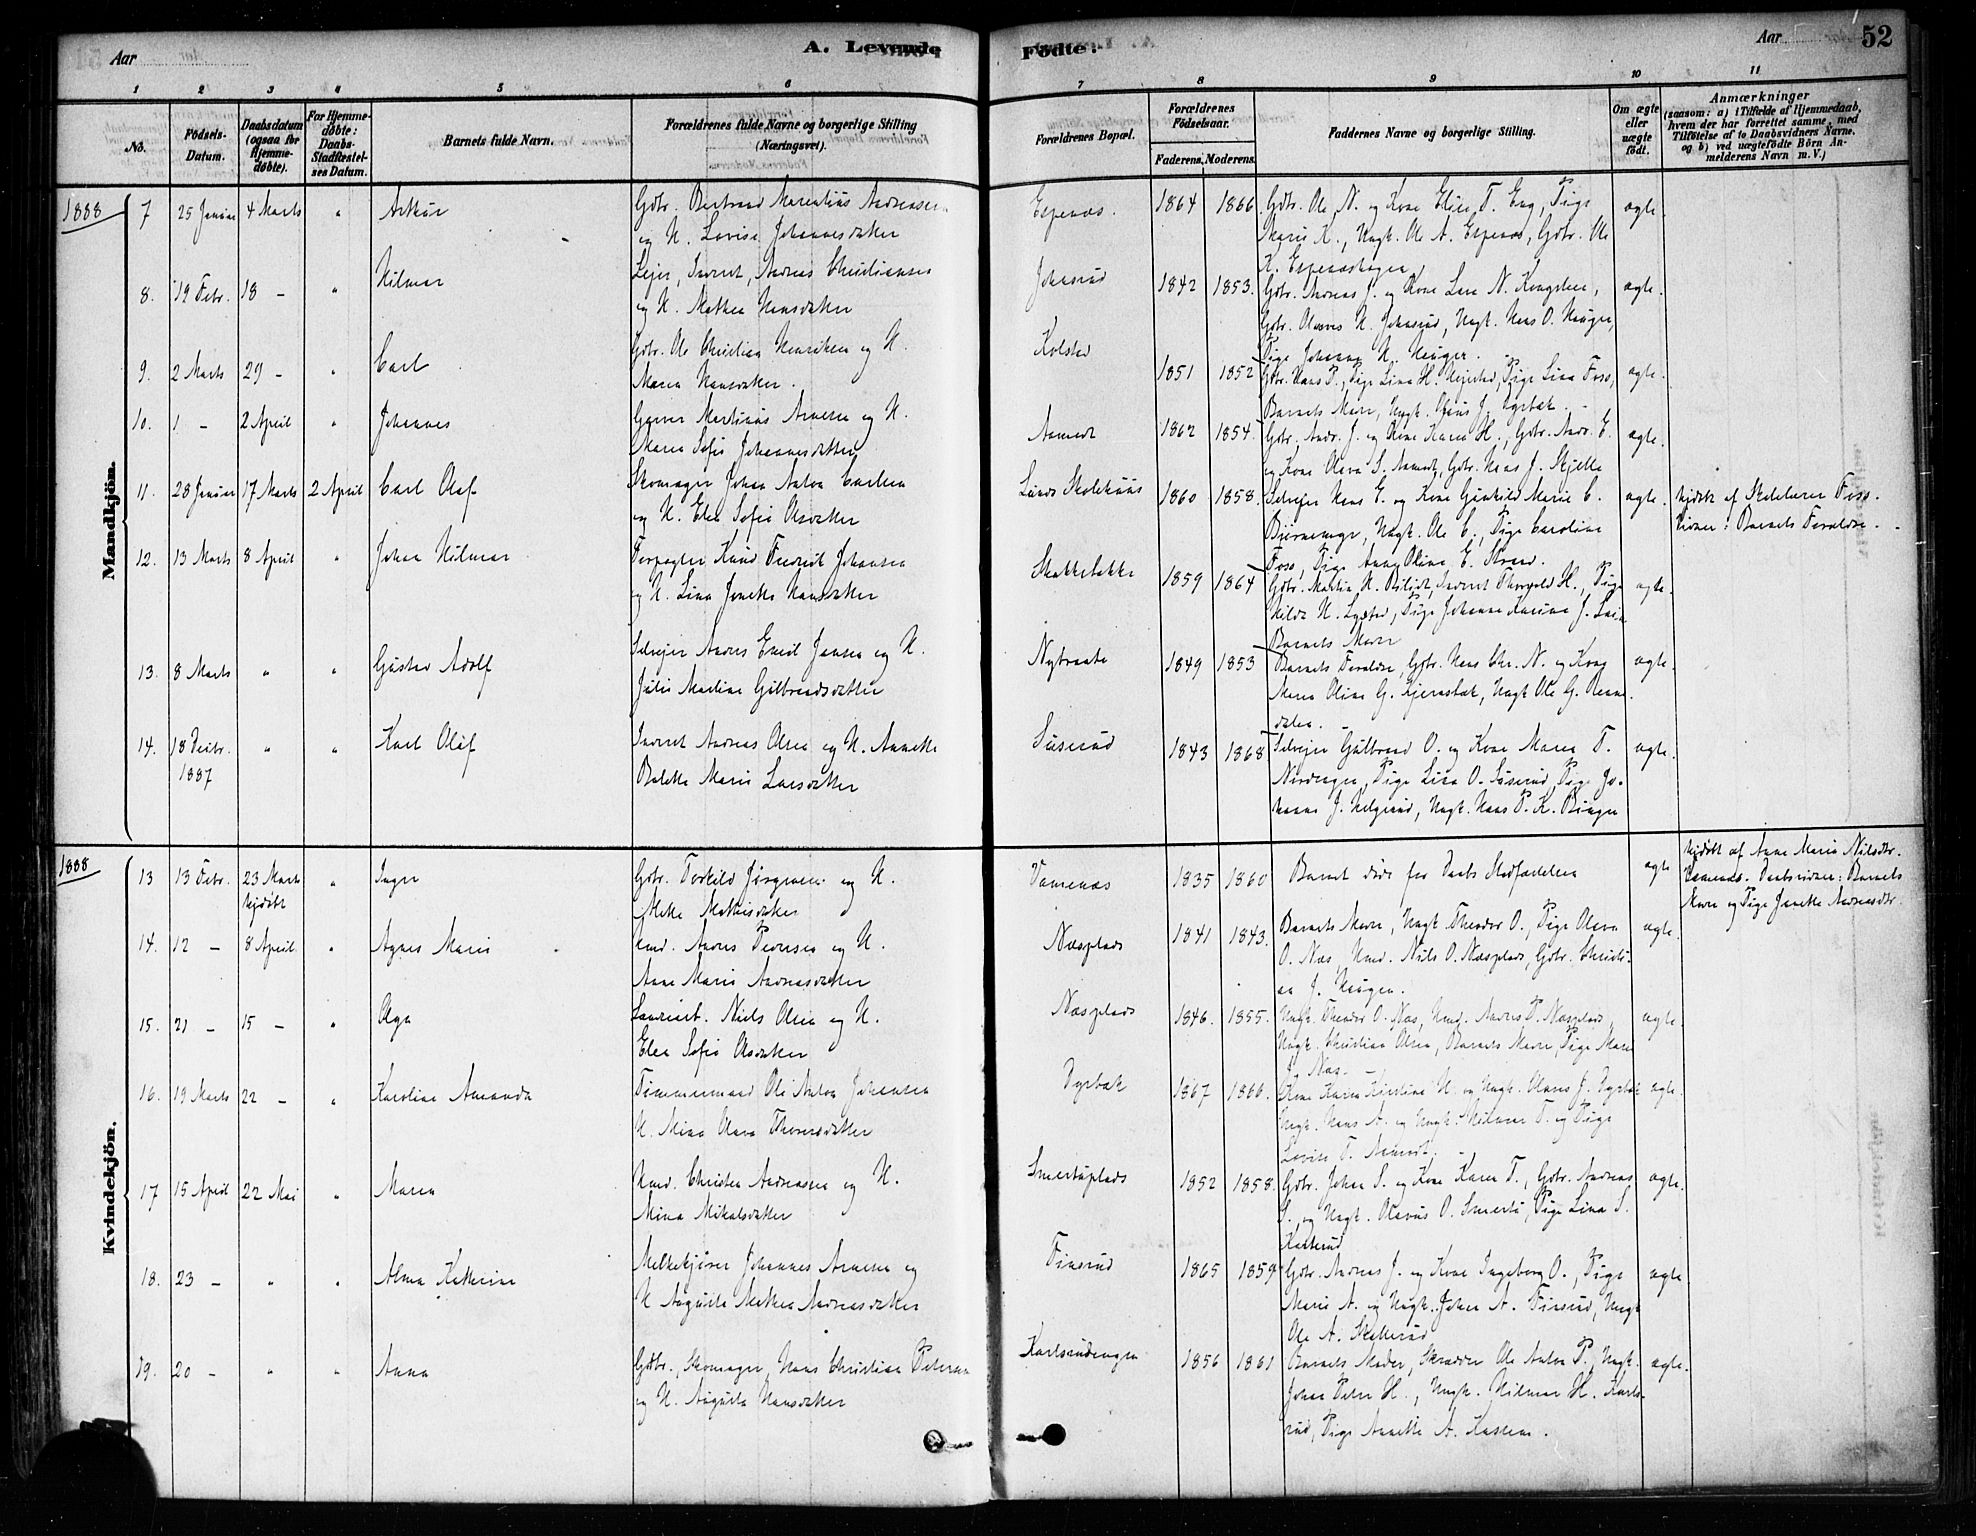 Aar
A. Levende
Födte.
Aar
52
1 2 3 4 5 6 7 8 9 10 11
No.
Födsels-
Datum.
Daabsdatum
(ogsaa for
Hjemme-
døbte).
For Hjemme-
døbte:
Daabs-
Stadfæstel-
ses Datum.
Barnets fulde Navn.
Forældrenes fulde Navne og borgerlige Stilling
(Næringsvei).
Forældrenes Bopæl.
Forældrenes
Födselsaar.
Faderens. Moderens.
Faddernes Navne og borgerlige Stilling.
Om ægte
eller
uægte
født.
Anmærkninger
(saasom: a) i Tilfælde af Hjemmedaab,
hvem der har forrettet samme, med
Tilføielse af to Daabsvidners Navne.
og b) ved uægtefödte Börn An-
melderens Navn m. V.)
Mandkjön.
1888
7 25 Januar 4 Marts " Arthur
Gdbr. Bertrand Marentius Andreassen
og H. Lovise Johannesdatter
Espenæs. 1864 1866
Gdbr. Ole N. og Kone Elise T. Eng, Pige
Marie K., Ungk. Ole A. Espenæs, Gdbr. Ole
K. Espenæshagen
ægte.
8. 19 Febr. 18 - " Hilmar
Leier, Inderst, Andreas Christiansen
og H. Mathea Hansdatter
Johnsrud 1842 1853.
Gdbr. Andreas J. og Kone Lar. N.
Gdbr. Olaves H. Johnsrud, Ungk. Hans O. Haugen,
Pige Johanne H. Haugen.
ægte.
9. 2 Marts 29 - " Carl
Gdbr. Ole Christian Henriksen og H.
Maren Hansdatter.
Kolstad 1851 1852
Gdbr. Hans P., Pige Lina H. Pige Lina Foss,
Barnets Mor, Ungk. Olaus J. Dyrbæk.
ægte.
10. 1 - 2 April " Johannes
Garver Martinius Arnesen og H.
Maren Sofie Johannesdatter
Aamodt 1862 1854.
Gdbr. Andr. J. og Kone Karen H., Gdbr. Andr. E.
og Kone Oleva S. Aamodt, Gdbr. Hans J. Skjelle
ægte.
11. 28 Januar 17 Marts 2 April Carl Olaf
Skomager Johan Anton Carlsen
og H. Elen Sofie Olsdatter
Lunds Skolehuus 1860 1858.
Selveier Hans E. og Kone Gunhild Marie C.
Ungk. Ole C., Pige Caroline
Foss, Pige Anne Oline E. Strand.
ægte.
hjdøbt af Skolelærer Foss.
Vidner: Barnets Forældre.
12. 13 Marts 8 April " Johan Hilmar
Forpagter Knud Fredrik Johansen
og H. Lina Janette Hansdatter
Skakkebakke 1859 1864
Gdbr. Martin H. Inderst Thorvald H., Pige
Hilda H. Pige Johanne Karine J.
Barnets Moder
ægte.
13. 8 Marts " " Gustav Adolf
Selveier Anders Emil Jensen og H.
Julie Martine Gulbrandsdatter
Nybraate 1849 1853
Barnets Forældre, Gdbr. Hans Chr. N. og Kone
Maren Oline G. Ungk. Ole G.
dalen.
ægte.
14. 18 Decbr.
1887
" " Karl Oluf
Inderst Andreas Olsen og H. Annette
Bolette Marie Larsdatter
Suserud 1843 1868
Selveier Gulbrand O. og Kone Maren T.
Nordengen, Pige Lina O. Suserud, Pige Jo-
hanne J. Helgerud, Ungk. Hans P. K. Bingen
ægte.
Kvindekjön.
1888
13 13 Febr. 23 Marts
hjdøbt
" Inger
Gdbr. Torkild Jørgensen og H.
Mette Mathisdatter
Vamenæs 1835 1860
Barnet døde før Daabs Stadfæstelsen
ægte
hjdøbt af Anne Marie Nilsdtr.
Daabsvidner: Barnets
Moder og Pige Janette Andreasdtr.
14. 12 - 8 April " Agnes Marie
Hmd. Anders Pedersen og H.
Anne Marie Andreasdatter
Næsplads 1841 1843.
Barnets Moder, Ungk. Theodor O., Pige Oleva
O. Næs, Hmd. Nils O. Næsplads, Gdbr. Christi-
an J. Haugen.
ægte.
15. 21 - 15 - " Olga
Niels Olsen og H.
Elen Sofie Olsdatter
Næsplads 1846. 1855.
Ungk. Theodor O. Næs, Hmd. Anders P. Næsplads,
Ungk. Christian Olsen, Barnets Moder, Pige Maren
J. Næs.
ægte.
16. 19 Marts 22 - " Karoline Amanda
Tømmermand Ole Anton Johansen
H. Mina Olava Thorersdatter
Dyrbæk 1867 1866.
Kone Karen Kirstine H. og Ungk. Olaves J. Dyrbæk
Ungk. Hans A. og Ungk. Hilmar T. og Pige
Lovise T. Aamodt.
ægte.
17 15 April 22 Mai " Maren
Hmd. Christen Andreassen og H.
Mina Mikalsdatter
Smertuplads 1852 1858.
Gdbr. Johan S. og Kone Karen T., Gdbr. Andreas
S. og Ungk. Olavus O. Smertu, Pige Lina S.
Karterud
ægte.
18. 23 - " " Alma Kathrine
Melkekjører Johannes Arnesen og
H. Augusta Mathea Andreasdatter
Finsrud 1865 1859
Gdbr. Andreas J. og Kone Ingeborg O., Pige
Marie A. og Ungk. Johan A. Finsrud, Ungk
Ole A. Skellerud
ægte
19. 20 - " " Anna
Gdbr., Skomager Hans Christian Petersen
og H. Augusta Hansdatter
Karlsrudengen 1856 1861
Barnets Moder, Skræder Ole Anton P., Ungk.
Johan Peder H., Ungk. Hilmar H. Karls-
rud, Pige Annette A.
ægte.